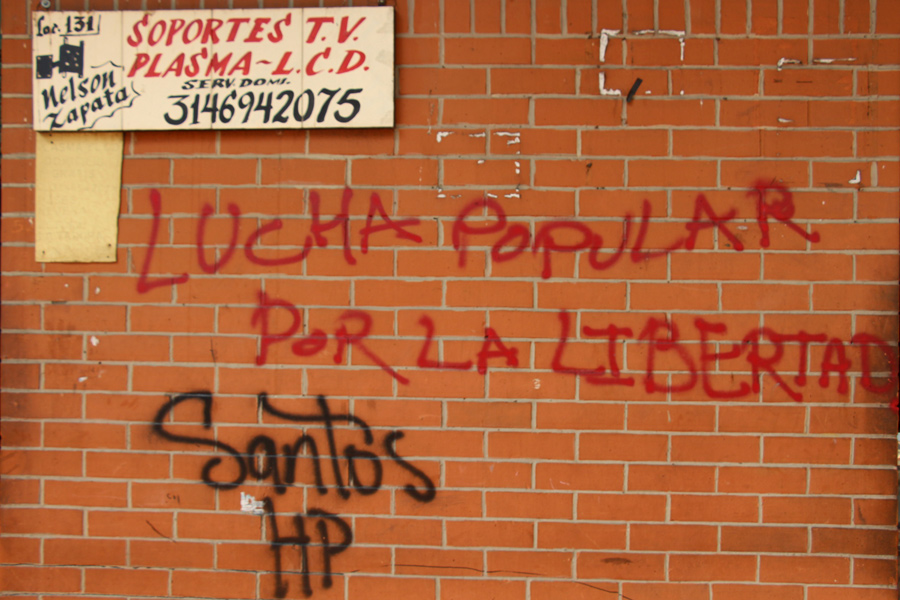 Loc. 131
SOPORTES T.V.
PLASMA~L.C.D.
SERV. DOMI.
3146942075
Nelson
Zapata
LUCHA POPULAR
POR LA LIBERTAD
Santos
HP